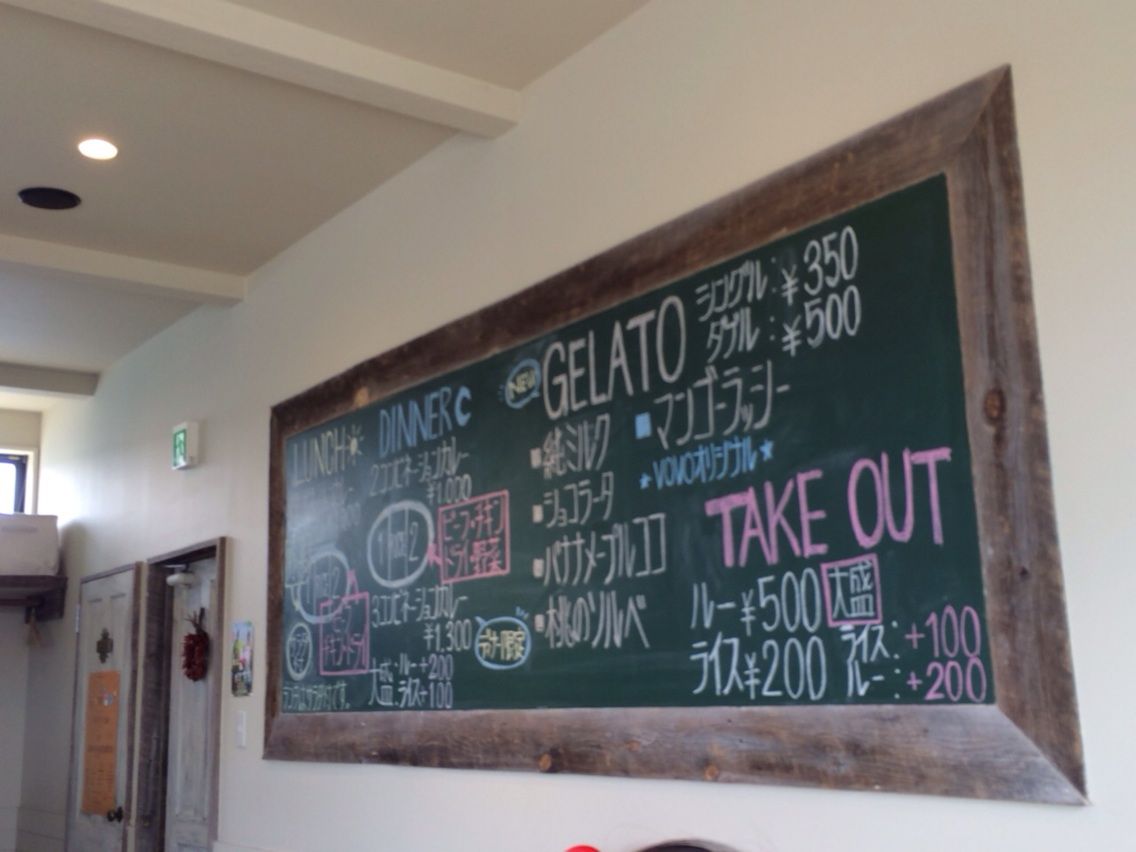 LUNCH
DINNER
2コンビネーションカレー
¥1,000
1 2
ビーフ・チキン
ドライ・野菜
3コンビネーションカレー
¥1,300
大盛:ルー+200
ライス+100
チキン・ドライ
ランチはサラダ付です。
NEW
GELATO
シングル:¥350
ダブル:¥500
純ミルク
ショコラータ
バナナメープルココ
桃のソルベ
マンゴーラッシー
★VOVOオリジナル★
ディナー限定
TAKE OUT
ルー¥500
ライス¥200
大盛
ライス:+100
ルー:+200